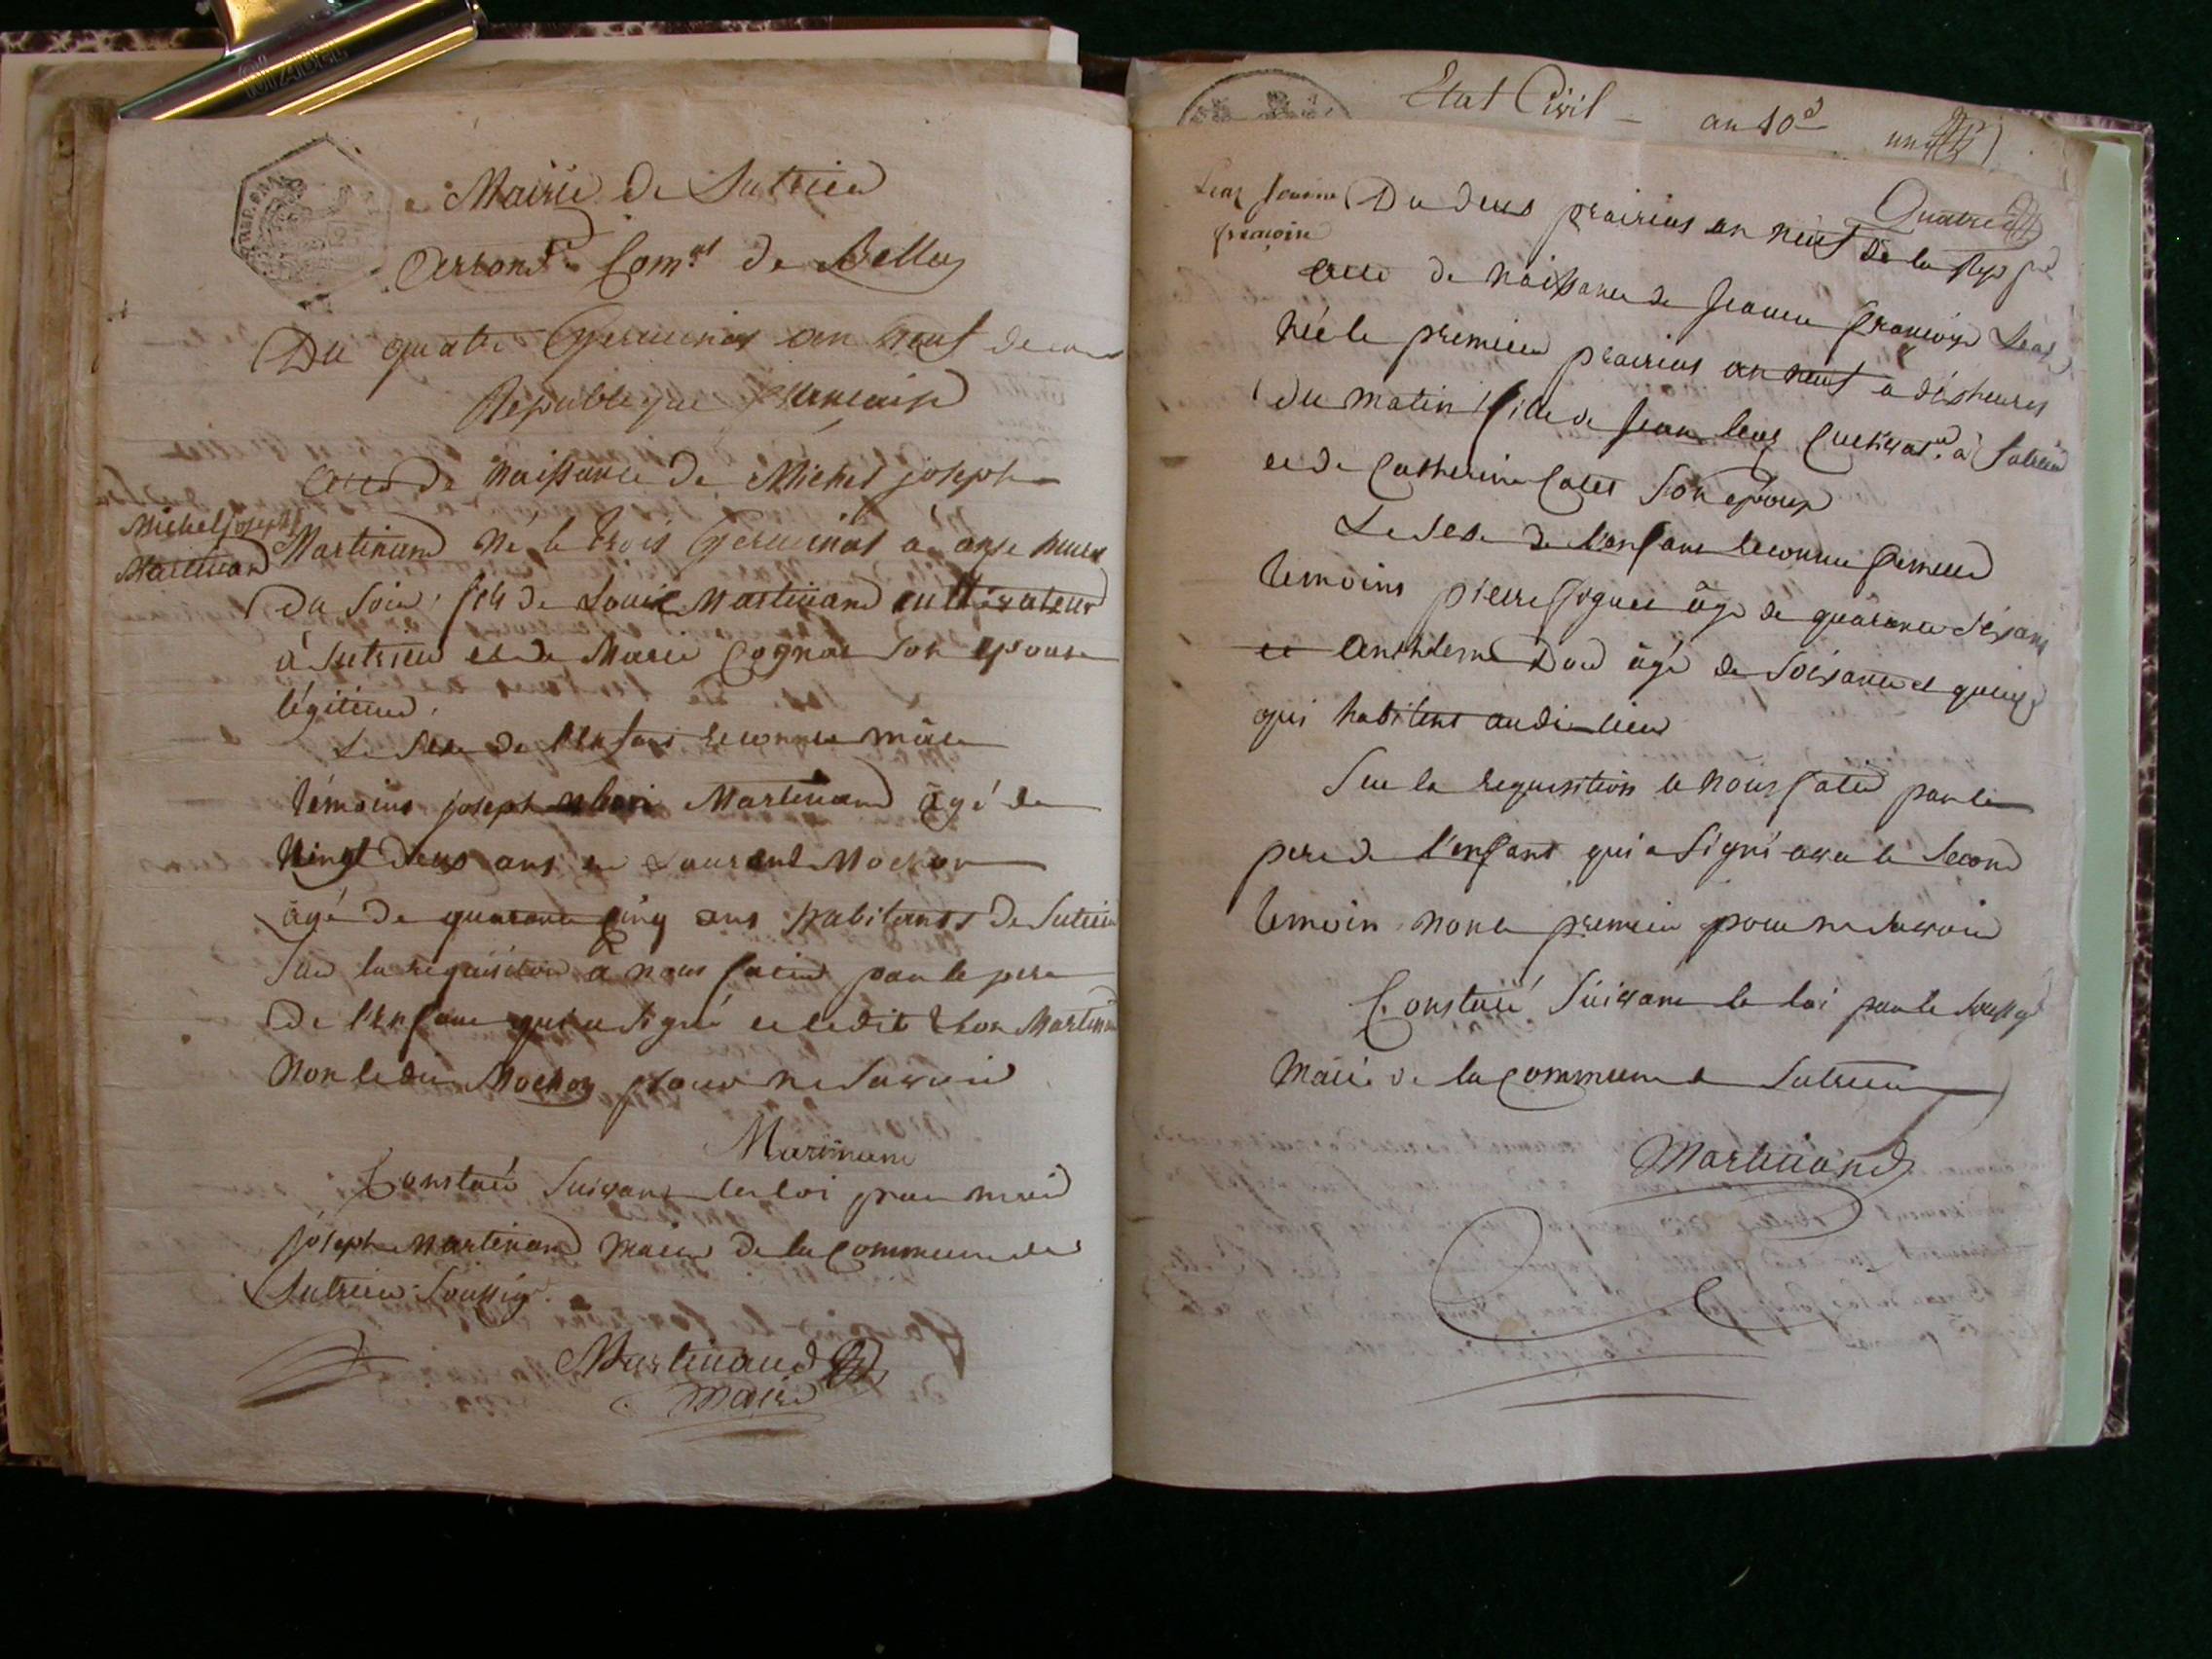 Mairie de Sutrieu
Arrond.t Com.al de Belley
Du quatre Germinal an neuf de la
Republique Francaise
acte de naissance de Michel joseph
Michel joseph
Martinand
Martinand né le trois Germinal à onze heures
Du soir, fils de Louis Martinand cultivateur
à Sutrieu et de Marie Cognat son epouse
légitime.
Le sexe de l'enfant reconnu mâle
témoins joseph Martinand âgé de
vingt deux ans et Laurent Mochon
âgé de quarante cinq ans habitants de Sutrieu
Sur la requisition à nous faite par le pere
de l'enfant qui a signé et ledit Martinand
non ledit Mochon pour ne savoir
Martinand
Constaté suivant la loi par moi
joseph Martinand maire de la Commune de
Sutrieu soussigé.
Martinand
maire
Etat Civil - an 10e un
Quatre
Jeanne
francoise
Du deux prairial an neuf de la Rep. fr
acte de naissance de Jeanne francoise
née le premier prairial an neuf a dix heures
du matin fille de Jean cultivat.r à Sutrieu
et de Catherine son epouse
Le sexe de l'enfant reconnu femelle
temoins pierre âgé de quarante six ans
et Anthelme âgé de soixante et quinze
qui habitent audit lieu
Sur la requisition a nous faite par le
pere de l'enfant qui a signé avec le second
temoin non le premier pour ne savoir
Constaté suivant la loi par le soussigé
maire de la Commune de Sutrieu
Martinand